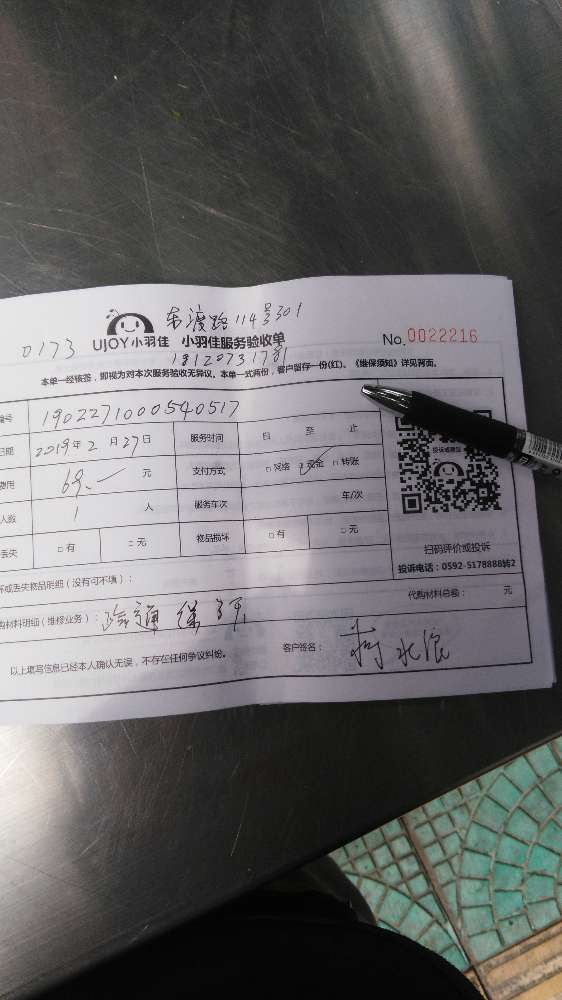 东渡路114号301
0173 UJOY小羽佳 小羽佳服务验收单 No.0022216
18120731781
本单一经核签，即视为对本次服务验收无异议。本单一式两份，客户留存一份(红)。《维保须知》详见背面。
编号 1902271000540517
日期 2019年2月27日 服务时间 自 至 止
费用 69.- 元 支付方式 □网络 ☑现金 □转账
人数 1 人 服务车次 车/次
丢失 □有 □无 物品损坏 □有 □无
投诉或建议
扫码评价或投诉
投诉电话：0592-5178888转2
坏或丢失物品明细（没有可不填）：
购材料明细（维修业务）： 疏通 代购材料总额： 元
以上填写信息已经本人确认无误，不存在任何争议纠纷。 客户签名：